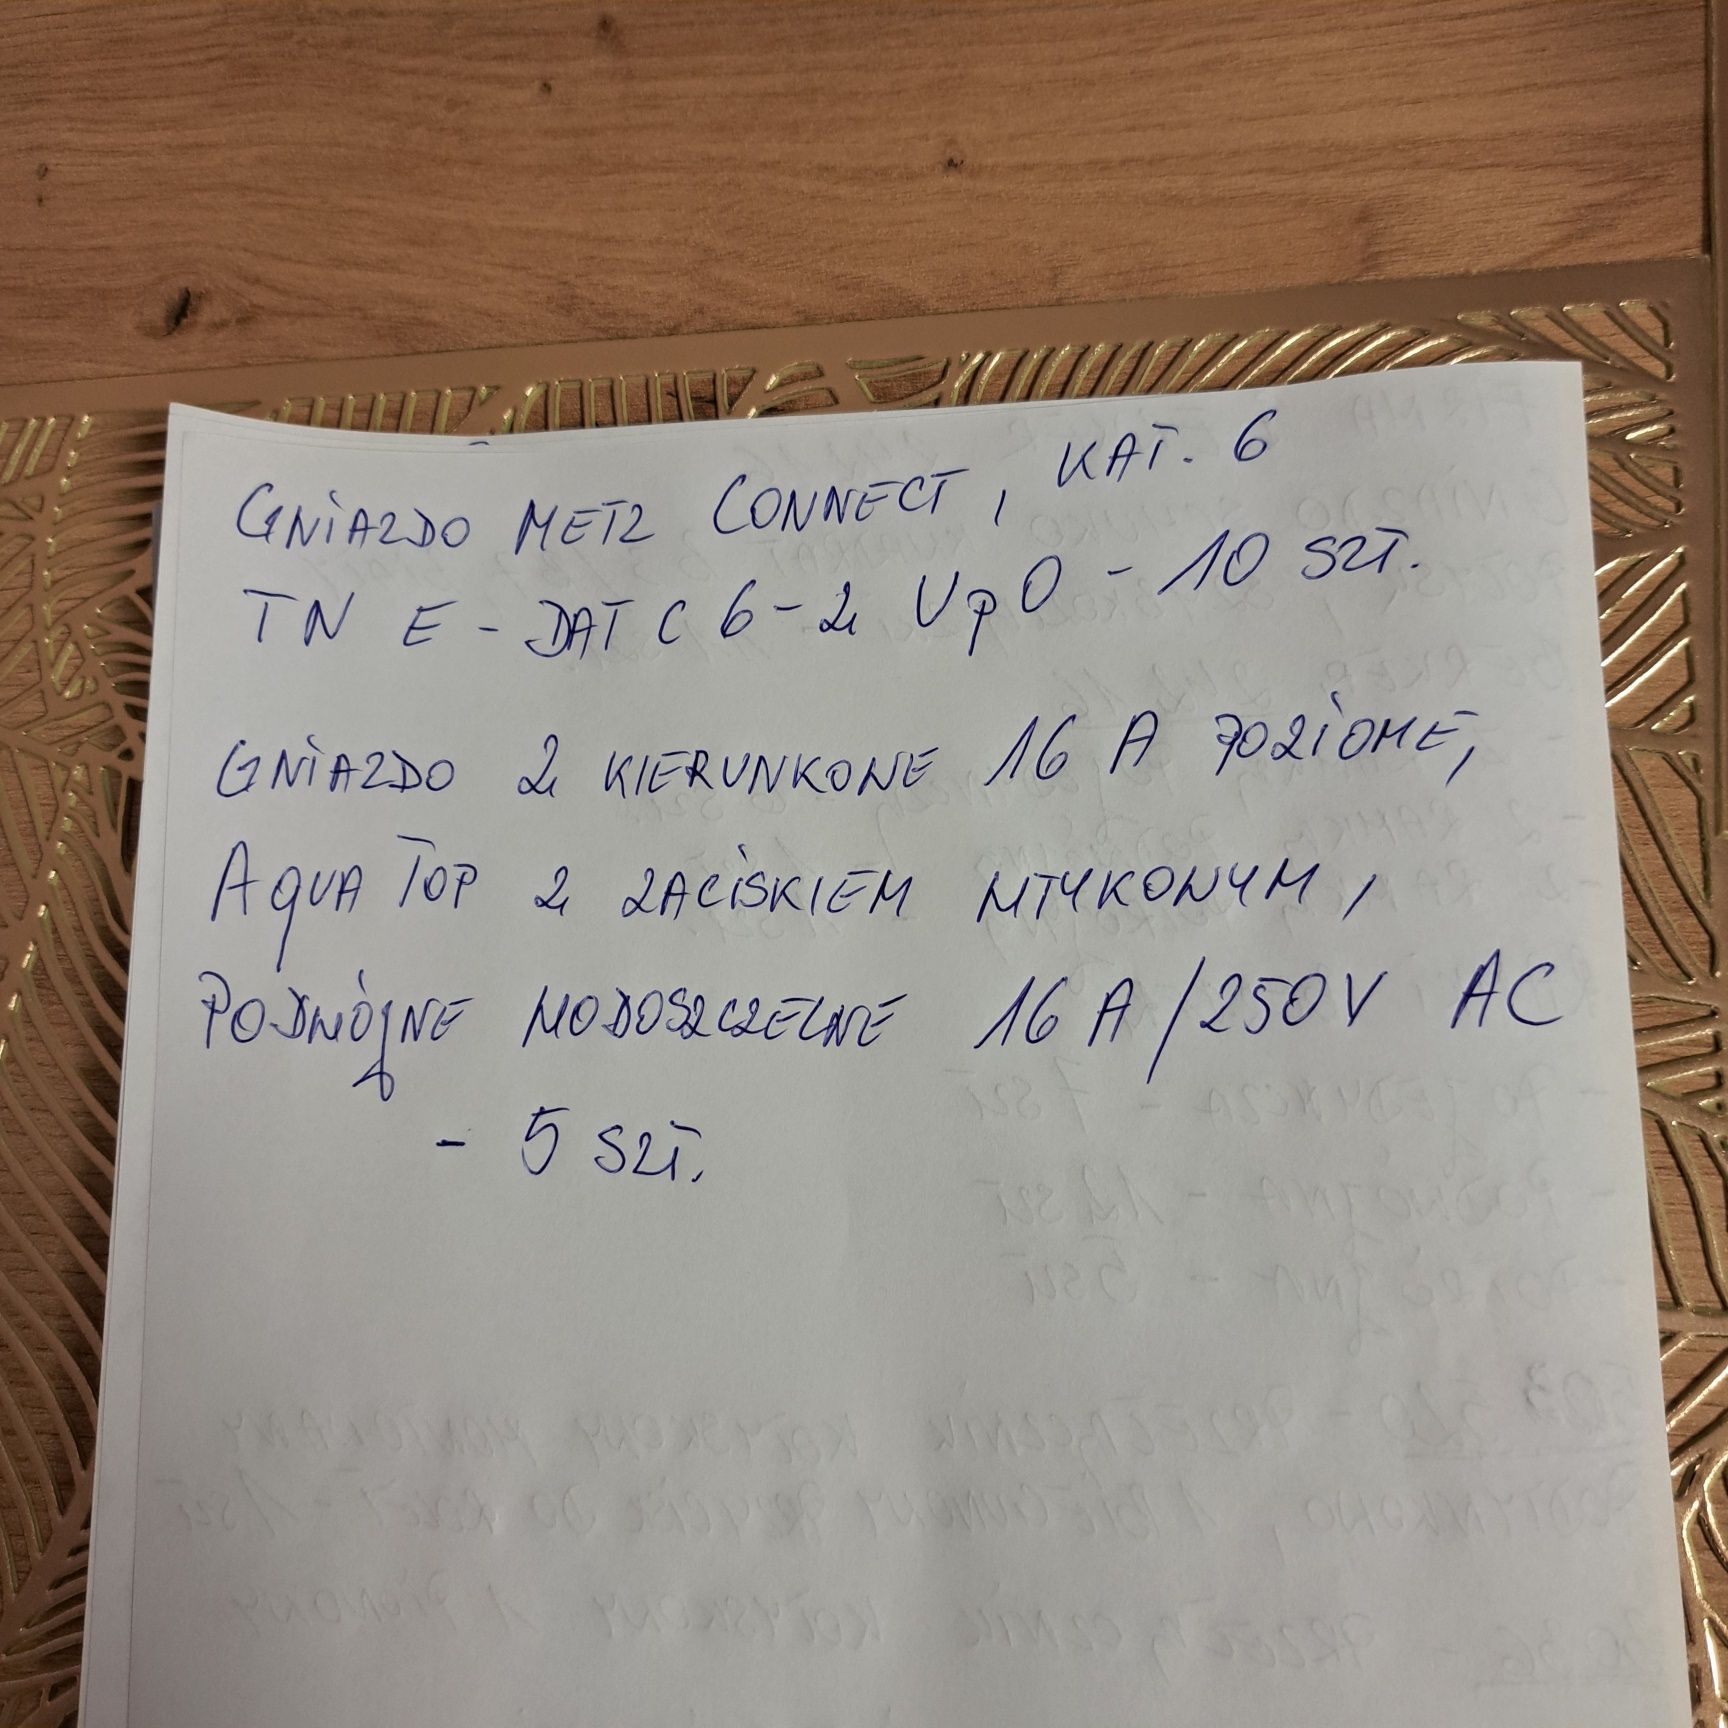 GNIAZDO METZ CONNECT, KAT. 6
TN E-DAT C 6-2 UpO - 10 SZT.
GNIAZDO 2 KIERUNKOWE 16 A POZIOME,
AQUA TOP Z ZACISKIEM WTYKOWYM,
PODWÓJNE WODOSZCZELNE 16 A/250V AC
- 5 SZT.